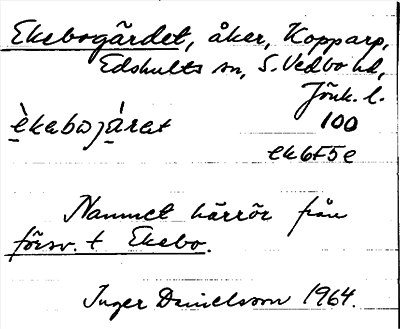 Ekebogärdet, åker, Kopparp,
Edshults sn, S. Vedbo hd,
Jönk. l.
èkabojárat 100
ek6F5e
Namnet härrör från
försv. t Ekebo.
Inger Danielsson 1964.